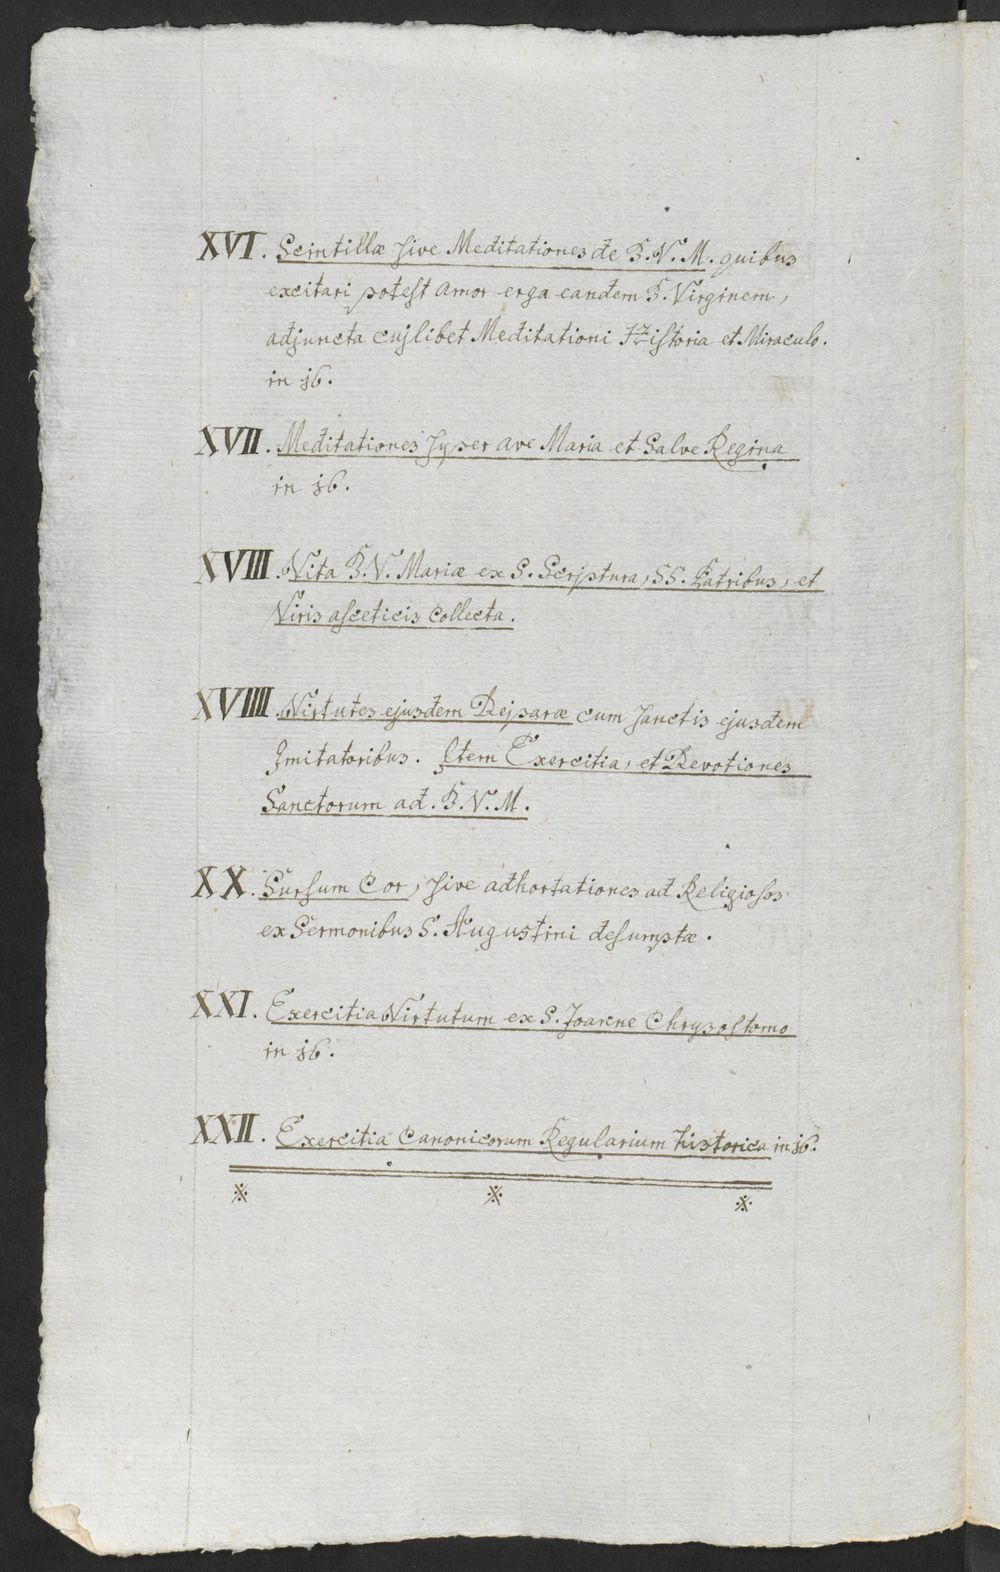 XVI. Scintillæ sive Meditationes de B.V.M. quibus
excitari potest amor erga eandem B. Virginem,
adjuncta cujslibet Meditationi Historia et Miraculo.
in 16.
XVII. Meditationes super ave Maria et Salve Regina
in 16.
XVIII. Vita B.V. Mariæ ex S. Scriptura, SS. Patribus, et
Viris asceticis Collecta.
XVIIII. Virtutes ejusdem Deiparæ cum sanctis ejusdem
Imitatoribus. Item Exercitia, et Devotiones
Sanctorum ad. B.V.M.
XX. Sursum Cor, sive adhortationes ad Religiosos
ex Sermonibus S. Augustini desumptæ.
XXI. Exercitia Virtutum ex S. Joanne Chrysostomo
in 16.
XXII. Exercitia Canonicorum Regularium historica in 16.